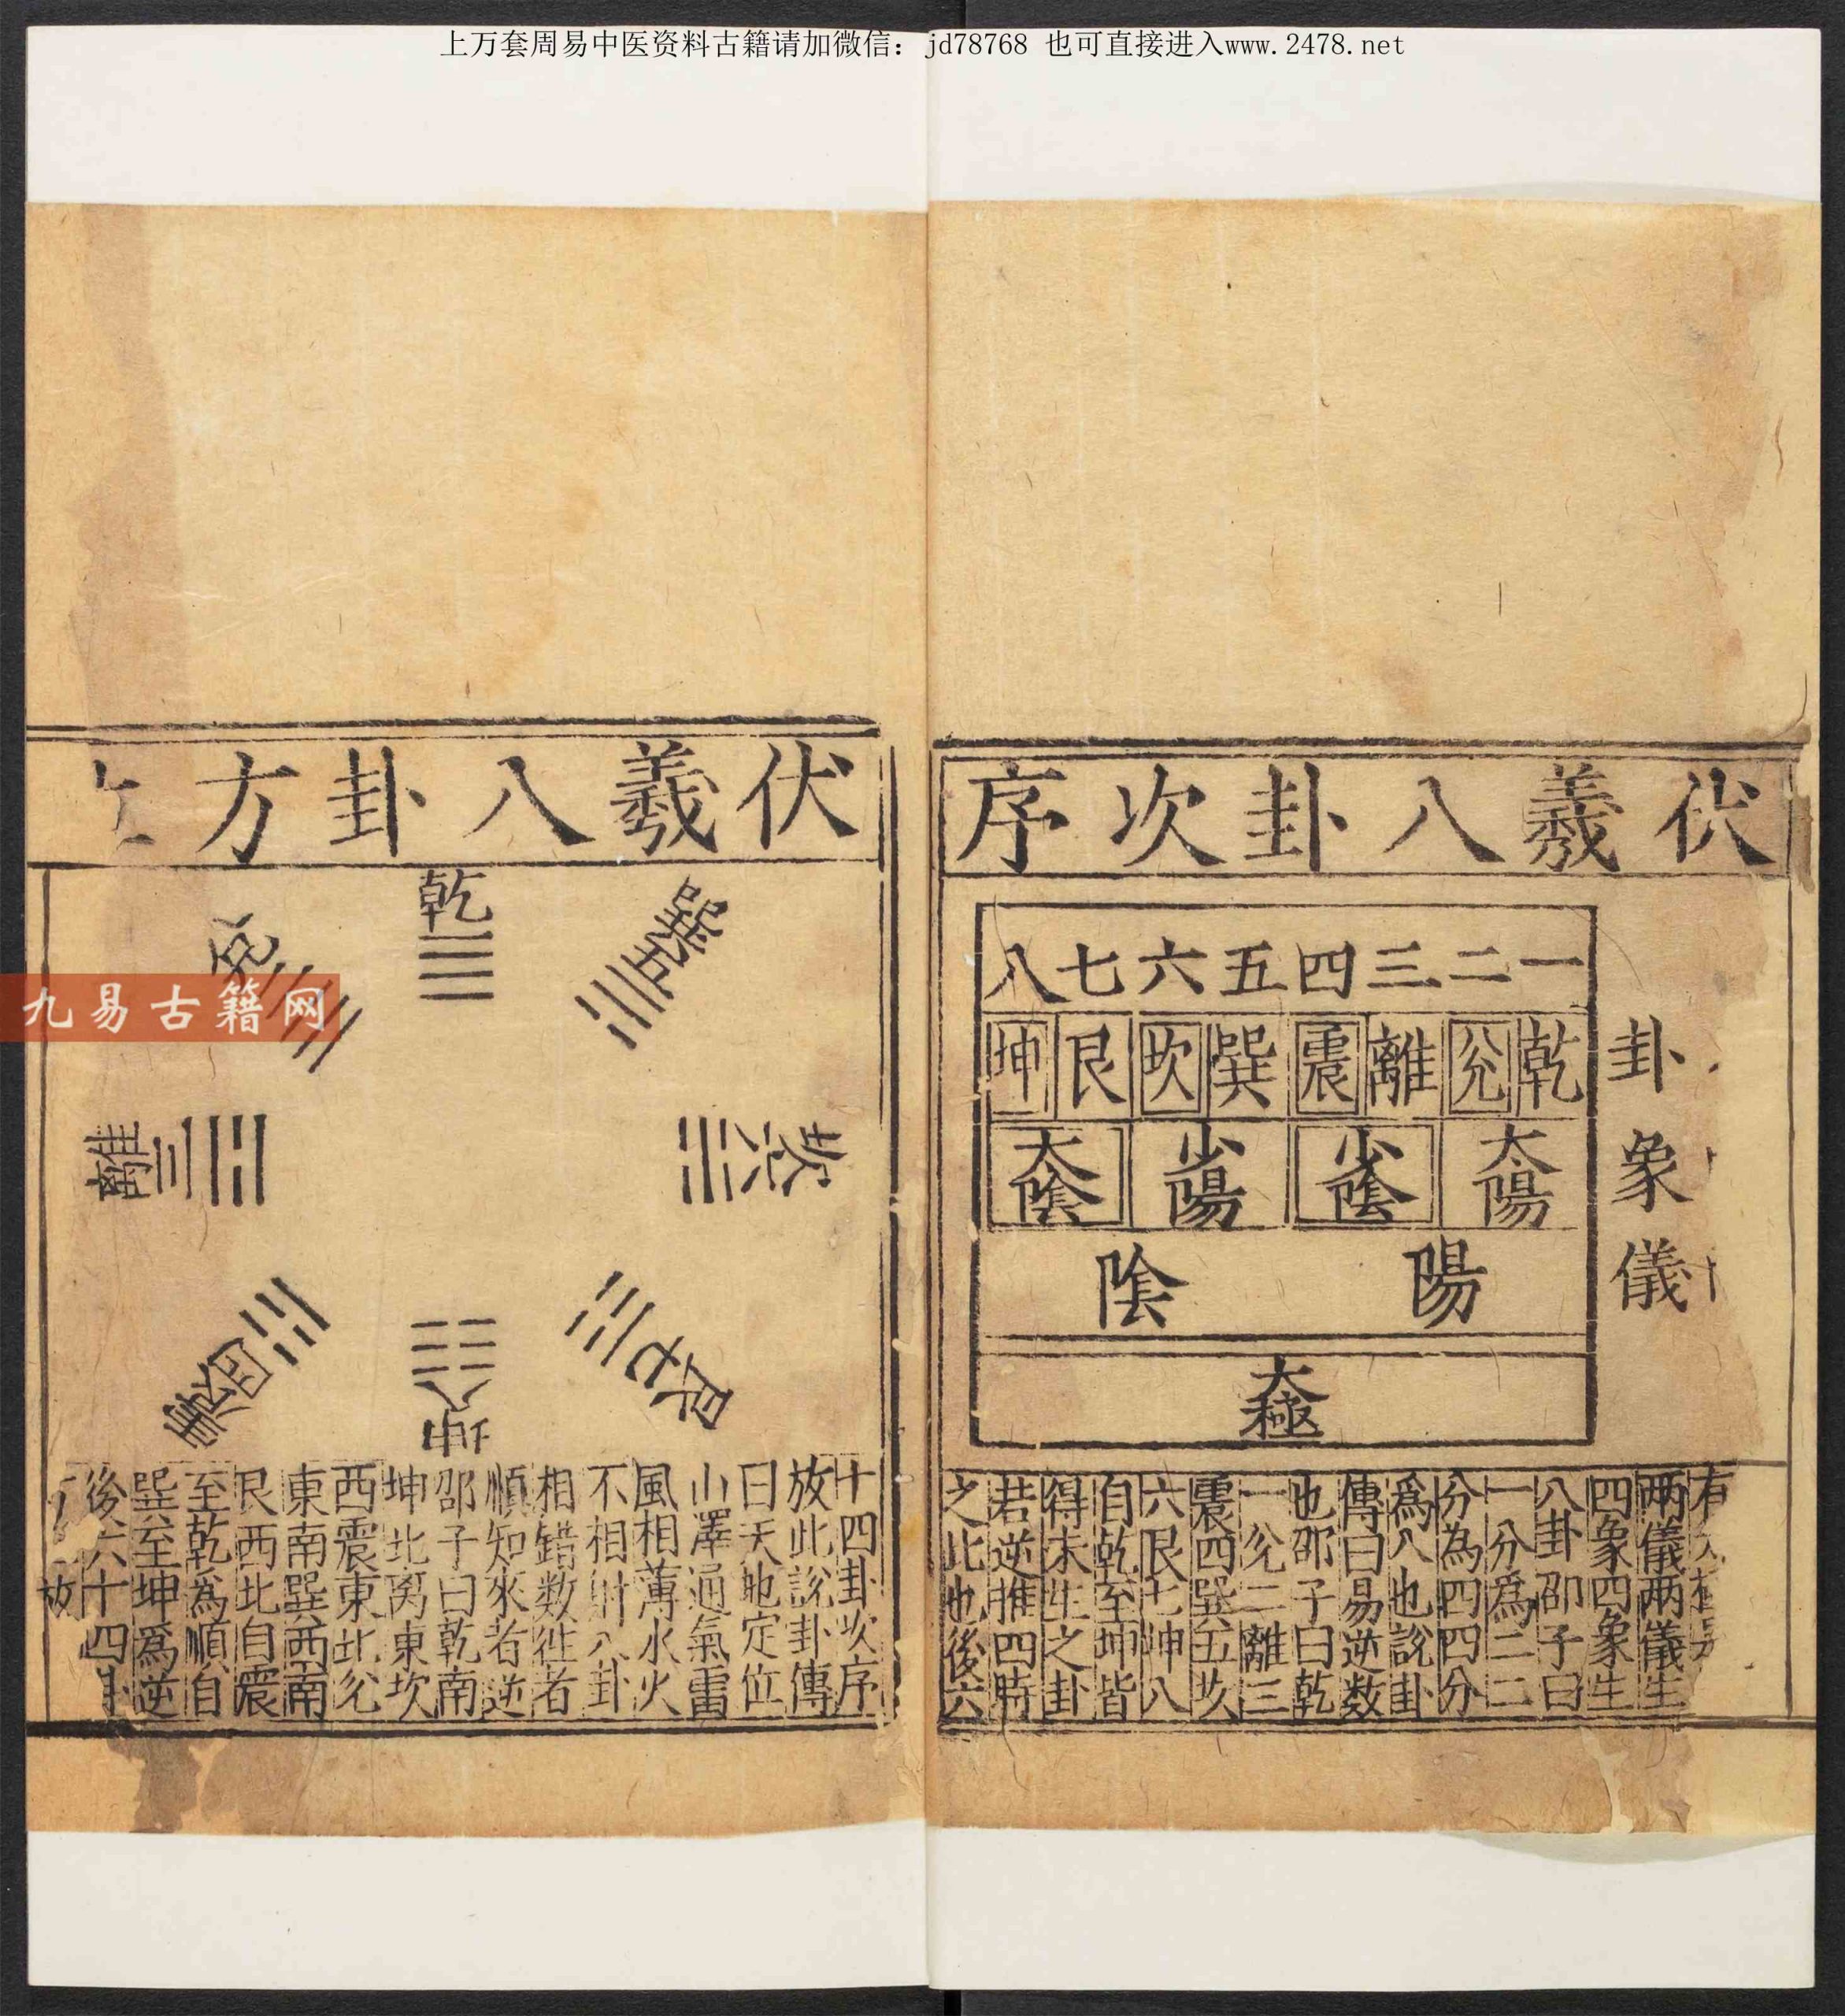 上万套周易中医资料古籍请加微信：jd78768 也可直接进入www.2478.net
伏羲八卦次序
一二三四五六七八
乾兌離震巽坎艮坤
太陽少陰少陽太陰
陽陰
太極
卦
象
儀
有
兩儀兩儀生
四象四象生
八卦邵子曰
一分爲二二
分為四四分
爲八也說卦
傳曰易逆数
也邵子曰乾
一兌二離三
震四巽五坎
六艮七坤八
自乾至坤皆
得未生之卦
若逆推四時
之比也後六
伏羲八卦方
乾一
兌二
離三
震四
巽五
坎六
艮七
坤八
十四卦次序
放此說卦傳
曰天地定位
山澤通氣雷
風相薄水火
不相射八卦
相錯数徃者
順知來者逆
邵子曰乾南
坤北离東坎
西震東北兌
東南巽西南
艮西北自震
至乾為順自
巽至坤爲逆
後六十四卦
放
九易古籍网